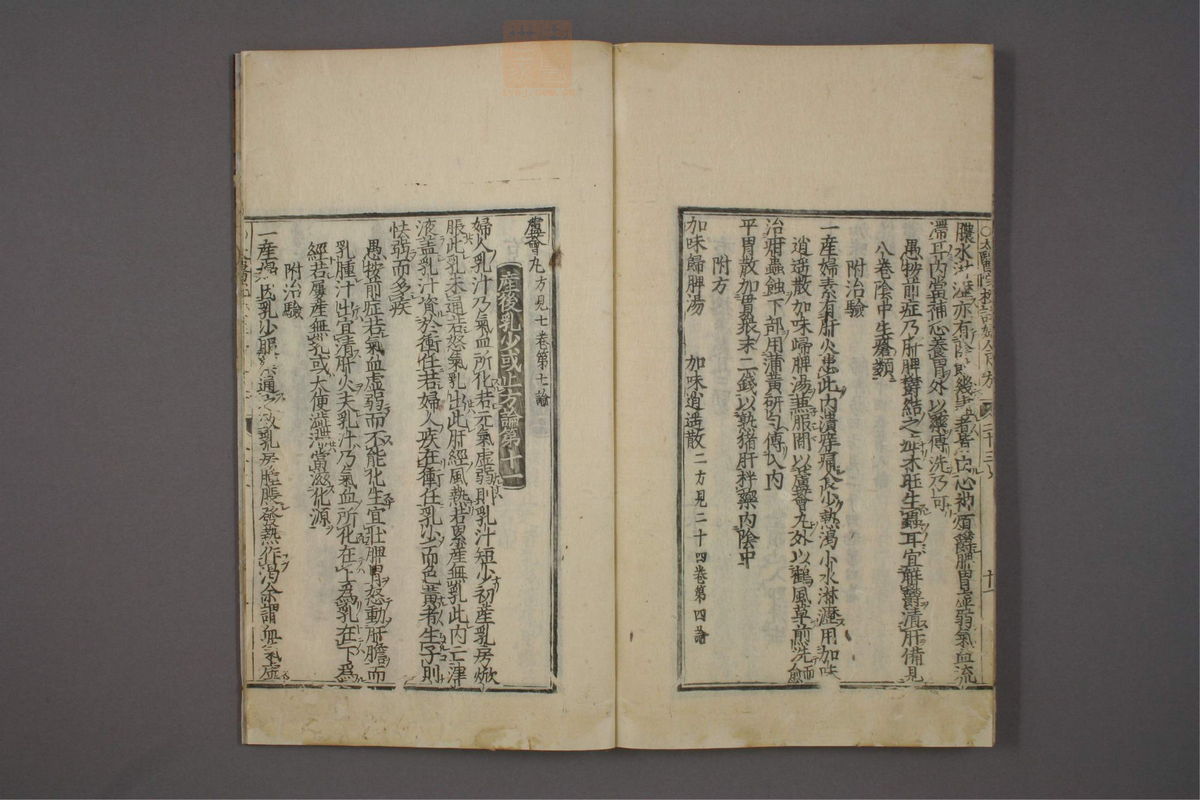 膿水淋瀝亦有陰蝕幾死者皆由心神煩鬱脾胃虛弱氣血流
滯耳內當補心養胃外以藥傅洗乃可
愚按前症乃肝脾鬱結之症木旺生蟲耳宜解鬱清肝備見
八卷陰中生瘡類
附治驗
一產婦素有肝火患此內潰痒痛食少熱渴小水淋瀝用加味
逍遙散加味歸脾湯兼服間以蘆薈丸外以鶴風草煎洗而愈
治疳蟲蝕下部用蒲黃研勻傅入內
平胃散加貫衆末二錢以熟猪肝拌藥內陰中
附方
加味歸脾湯 加味逍遙散二方見二十四卷第四論
蘆薈丸方見七卷第七論
產後乳少或止方論第十一
婦人乳汁乃氣血所化若元氣虛弱則乳汁短少初產乳房焮
脹此乳未通若怒氣乳出此肝經風熱若累產無乳此內亡津
液蓋乳汁資於衝任若婦人疾在衝任乳少而色黃者生子則
怯弱而多疾
愚按前症若氣血虛弱而不能化生宜壯脾胃怒動肝膽而
乳腫汁出宜清肝火夫乳汁乃氣血所化在上為乳在下為
經若屢產無乳或大便澁滯當滋化源
附治驗
一產婦 氏乳少服 通 致乳房腫脹發熱作渴余謂 氣血虛